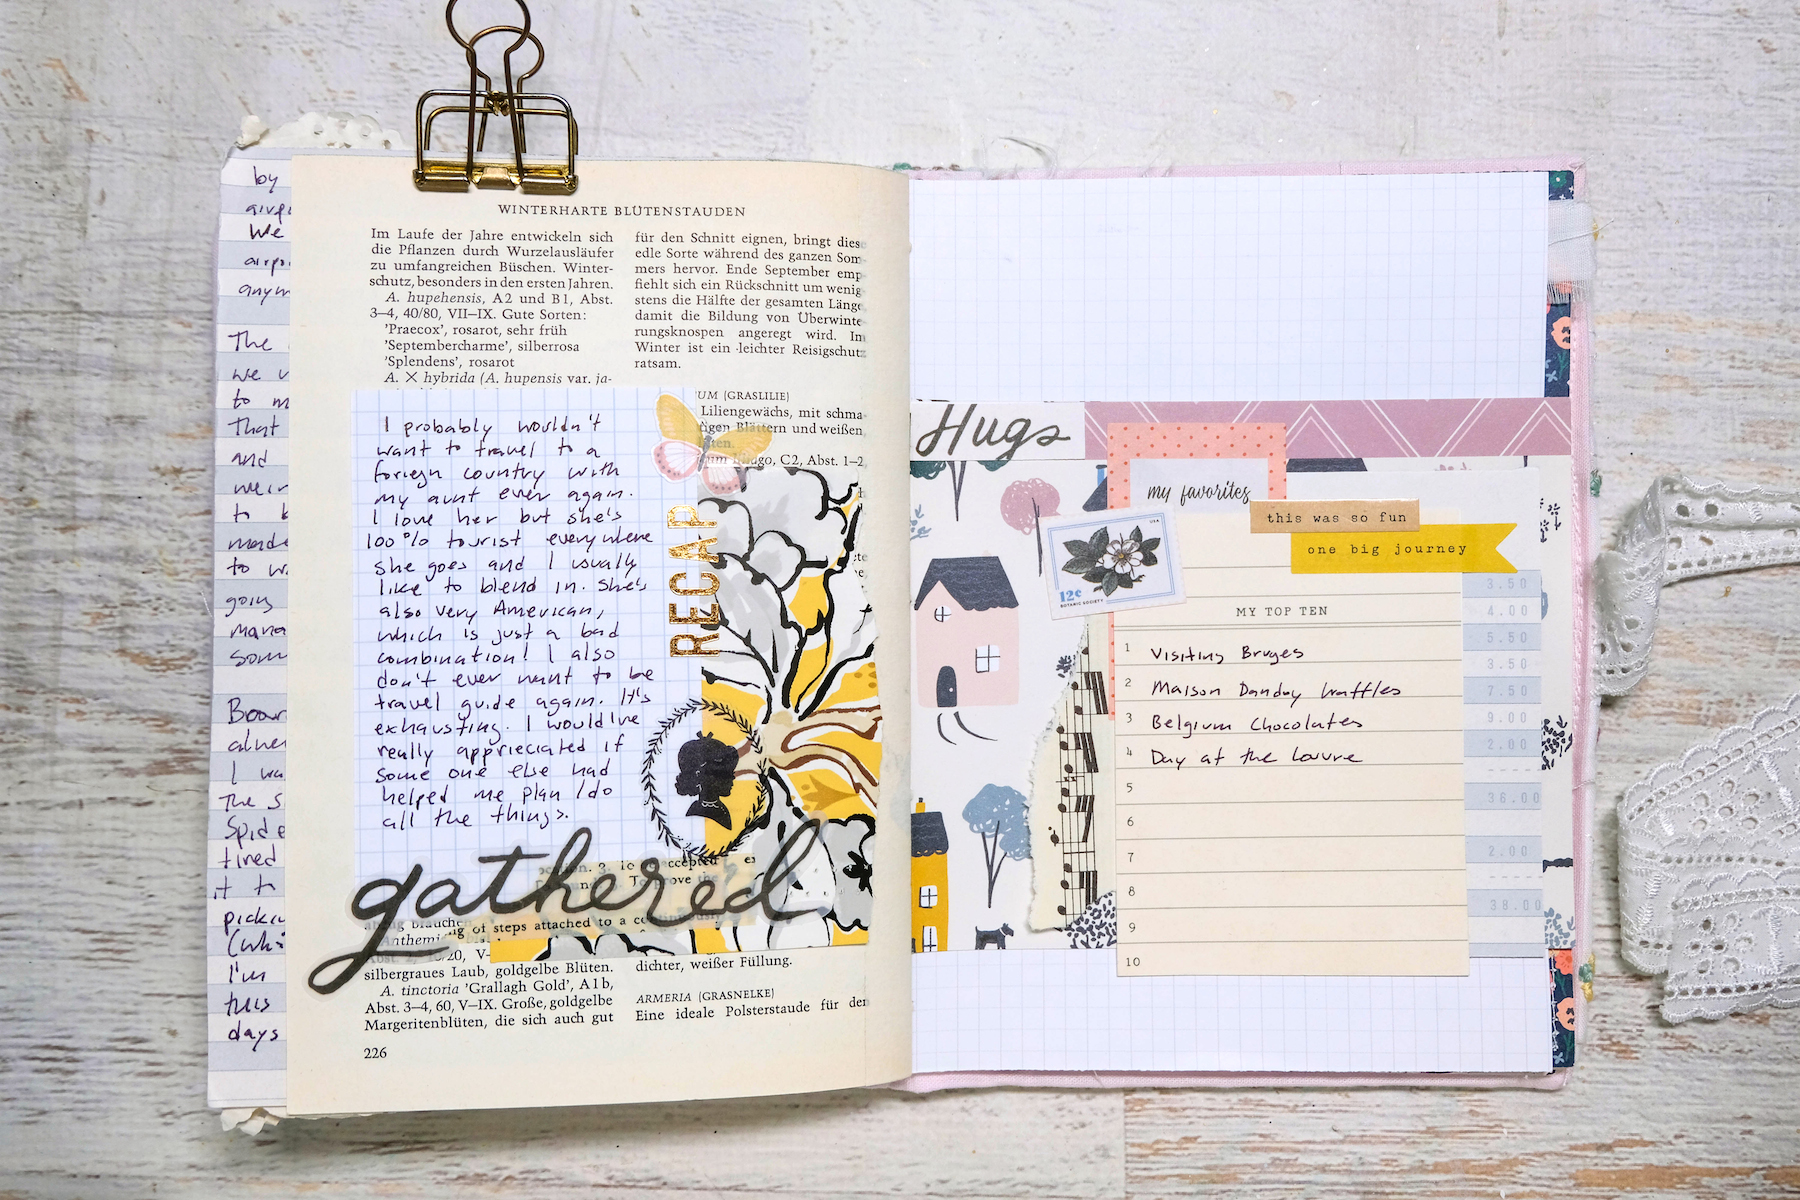 by
We
The
we
to
That
and
to
made
to
going
I
The
tired
it to
I'm
this
days
WINTERHARTE BLÜTENSTAUDEN
Im Laufe der Jahre entwickeln sich
die Pflanzen durch Wurzelausläufer
zu umfangreichen Büschen. Winter-
schutz, besonders in den ersten Jahren.
A. hupehensis, A2 und B1, Abst.
3–4, 40/80, VII–IX. Gute Sorten:
'Praecox', rosarot, sehr früh
'Septembercharme', silberrosa
'Splendens', rosarot
A. × hybrida (A. hupensis var. ja-
für den Schnitt eignen, bringt diese
edle Sorte während des ganzen Som-
mers hervor. Ende September emp-
fiehlt sich ein Rückschnitt um wenig-
stens die Hälfte der gesamten Länge
damit die Bildung von Überwinte-
rungsknospen angeregt wird. Im
Winter ist ein leichter Reisigschutz
ratsam.
UM (GRASLILIE)
Liliengewächs, mit schma-
Blättern und weißen
C2, Abst. 1–2
I probably wouldn't
want to travel to a
foriegn country with
my aunt ever again.
I love her but she's
100% tourist everywhere
she goes and I usually
like to blend in. She's
also very American,
which is just a bad
combination! I also
don't ever want to be
travel guide again. It's
exhausting. I would've
really apprieciated if
some one else had
helped me plan/do
all the things.
RECAP
gathered
accepted
To prove the
of steps attached to a
brauchen
20, V–
silbergraues Laub, goldgelbe Blüten.
A. tinctoria 'Grallagh Gold', A1b,
Abst. 3–4, 60, V–IX. Große, goldgelbe
Margeritenblüten, die sich auch gut
226
dichter, weißer Füllung.
ARMERIA (GRASNELKE)
Eine ideale Polsterstaude für den
Hugs
my favorites
this was so fun
one big journey
USA
12c
BOTANIC SOCIETY
MY TOP TEN
1 Visiting Bruges
2 Maison Dandoy Waffles
3 Belgium Chocolates
4 Day at the Louvre
5
6
7
8
9
10
3.50
4.00
5.50
3.50
7.50
9.00
2.00
36.00
2.00
38.00